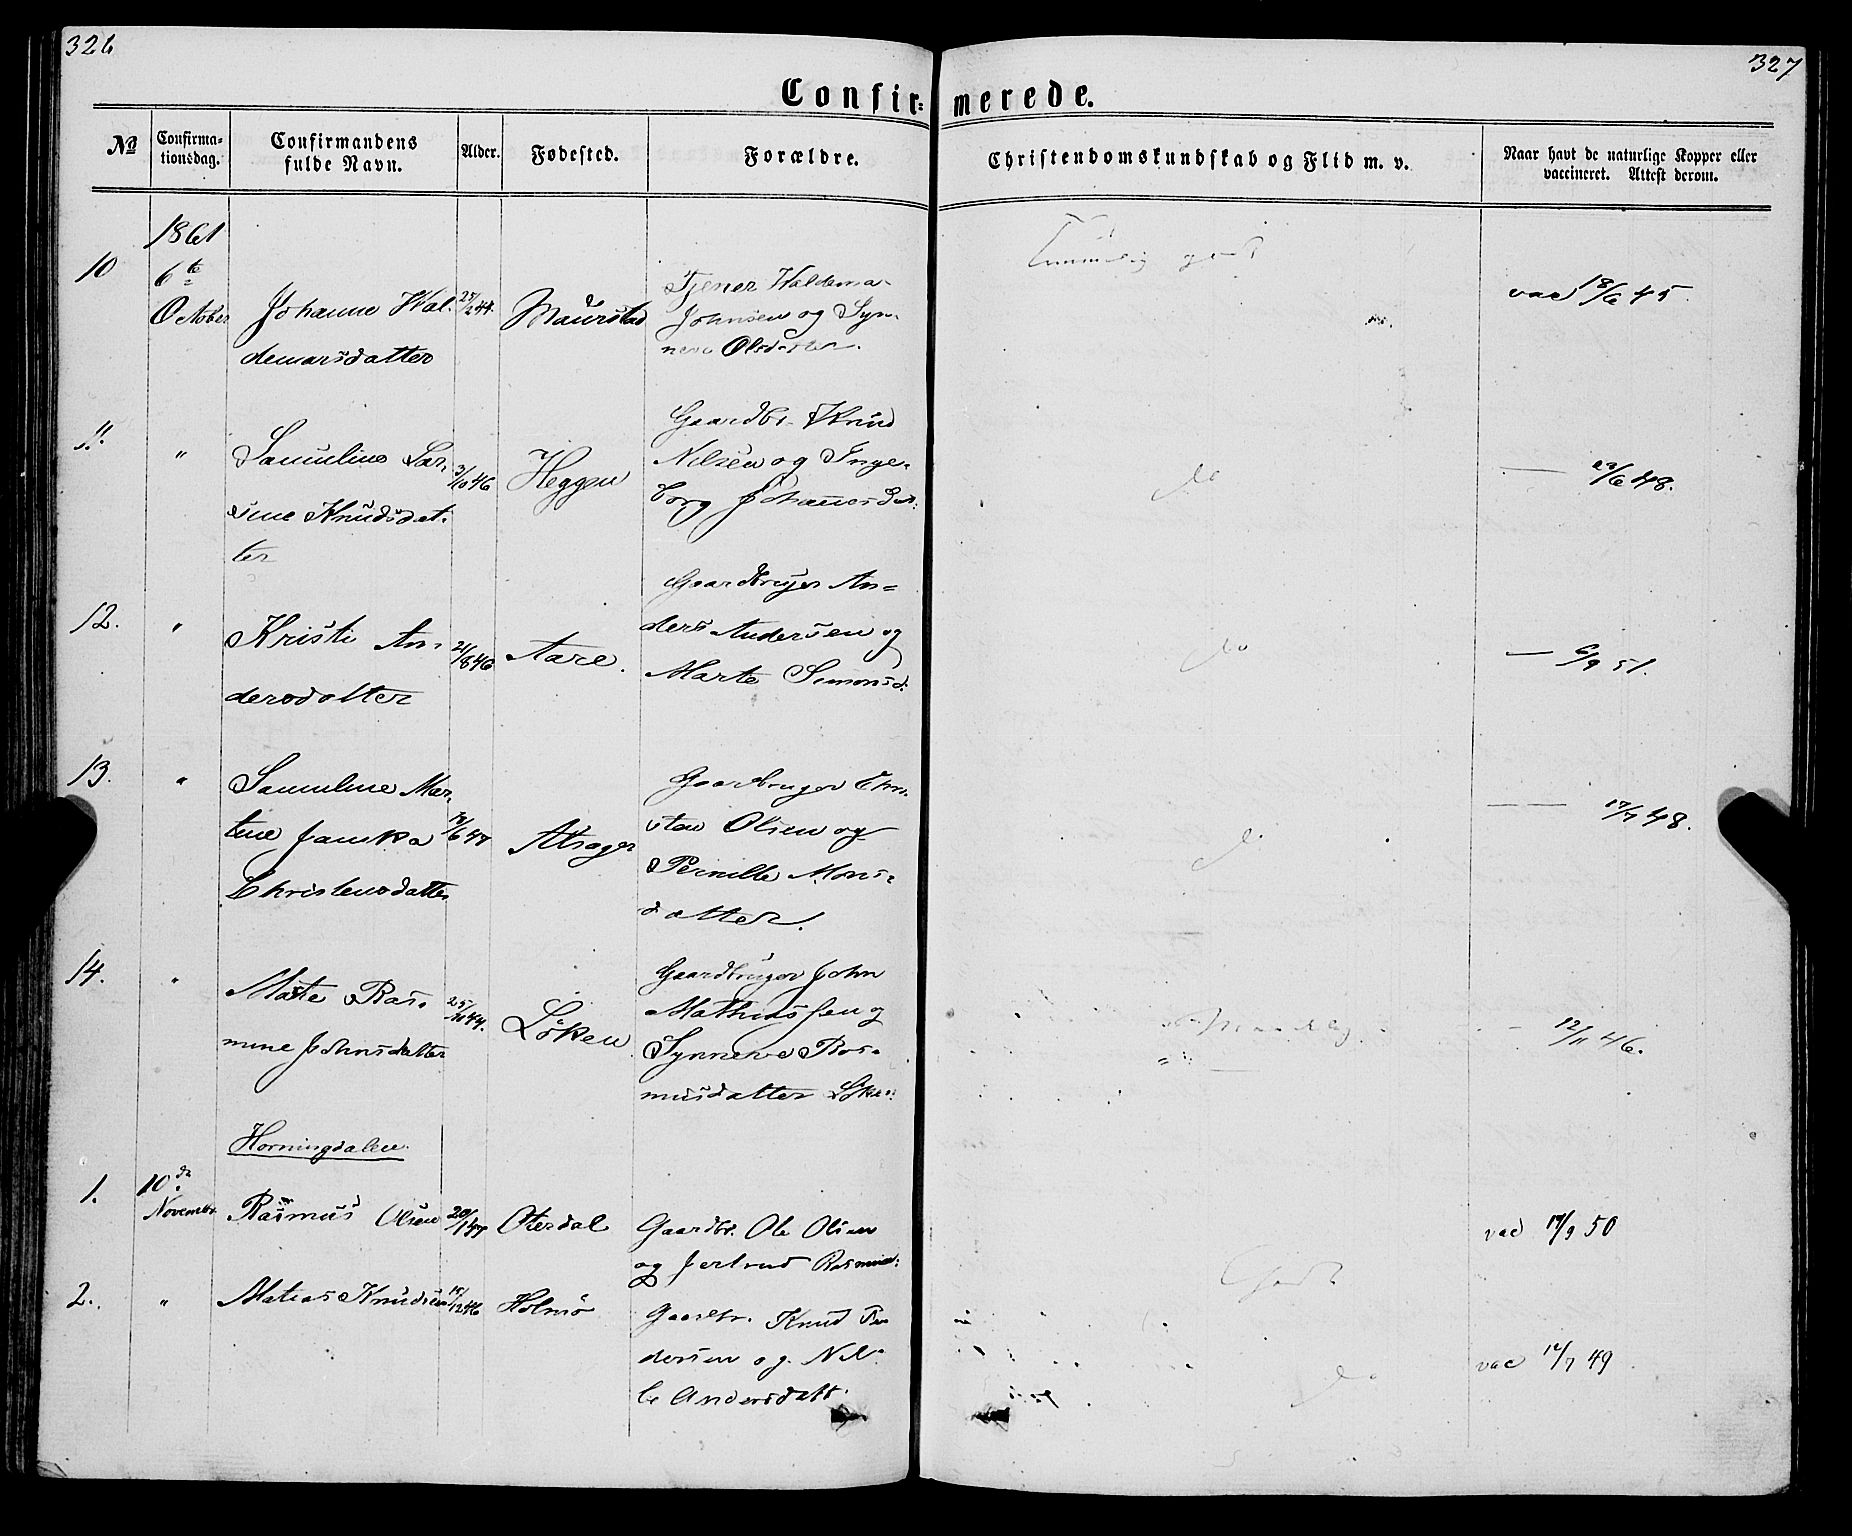 326
327
Confir= merede.
No
Confirma-
tionsdag.
Confirmandens
fulde Navn.
Alder.
Fødested.
Forældre.
Christendomskundskab og Flid m. v.
Naar havt de naturlige Kopper eller
vaccineret. Attest derom.
1861
10
6te
October
Johanne Wal-
demarsdatter
Maurstad
Tjener Waldema-
Johnsen og Syn-
neve Olsdatter.
godt
vac 18/6 45.
11.
"
Samuline Lar-
sine Knudsdat-
ter
3/10 46
Heggen
Gaardbr. Knud
Nilsen og Inge-
borg Johannesdat:
do
— 29/6 48.
12.
"
Kristi An-
dersdatter
21/8 46
Aare.
Gaardbruger An=
ders Andersen og
Marte Simonsd:
do
— 6/9 51.
13.
"
Samuline Mar-
tine Janska
Christensdatter
18/6 47
Gaardbruger Chri-
sten Olsen og
Pernille Mons-
datter.
do
— — 17/7 48.
14.
"
Marte Ras-
mine Johnsdatter
25/10 44.
Löken
Gaardbruger John
Mathiassen og
Synneve Ras-
musdatter Löken
— 12/11 46.
Horningdalen
1.
10de
November
Rasmus Olsen
20/1 47
Oterdal
Gaardbr. Ole Olsen
og Jertrud Rasmusd:
Godt
vac 17/9 50
2.
"
Matias Knudsen
15/12 46
Holmö
Gaardbr. Knud Pe-
dersen og Nil-
le Andersdatt.
do
vac 12/7 49